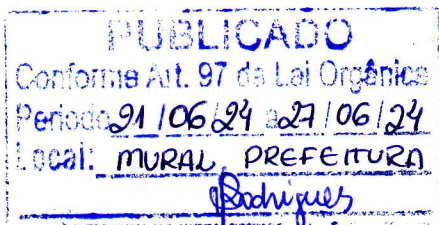 PUBLICADO
Conforme Art. 97 da Lei Orgânica
Periodo 21/06/24 a 27/06/24
Local: MURAL PREFEITURA
Rodrigues